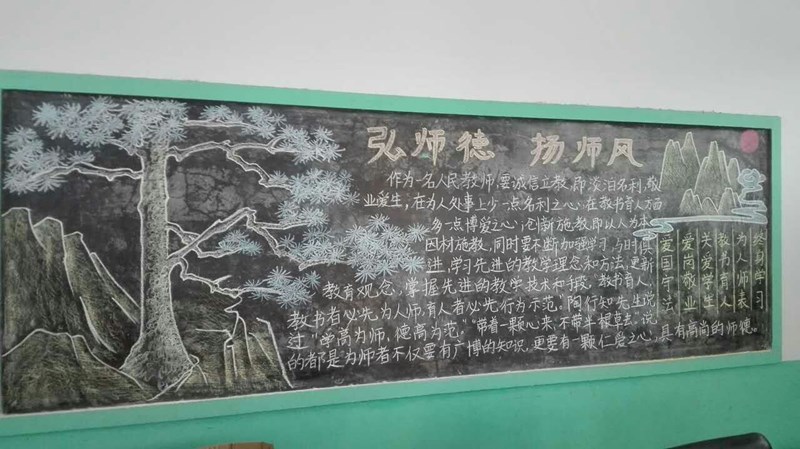 弘师德 扬师风
作为一名人民教师,要诚信立教,即淡泊名利,敬
业爱生,在为人处事上少一点名利之心,在教书育人方面
多一点博爱之心;创新施教即以人为本
因材施教,同时要不断加强学习,与时俱
进,学习先进的教学理念和方法,更新
教育观念,掌握先进的教学技术和手段。教书育人
教书者必先为人师,育人者必先行为示范。陶行知先生说
过“学高为师,德高为范。”“带着一颗心来,不带半根草去”说
的都是为师者不仅要有广博的知识,更要有一颗仁爱之心,具有高尚的师德。
爱国守法
爱岗敬业
关爱学生
教书育人
为人师表
终身学习